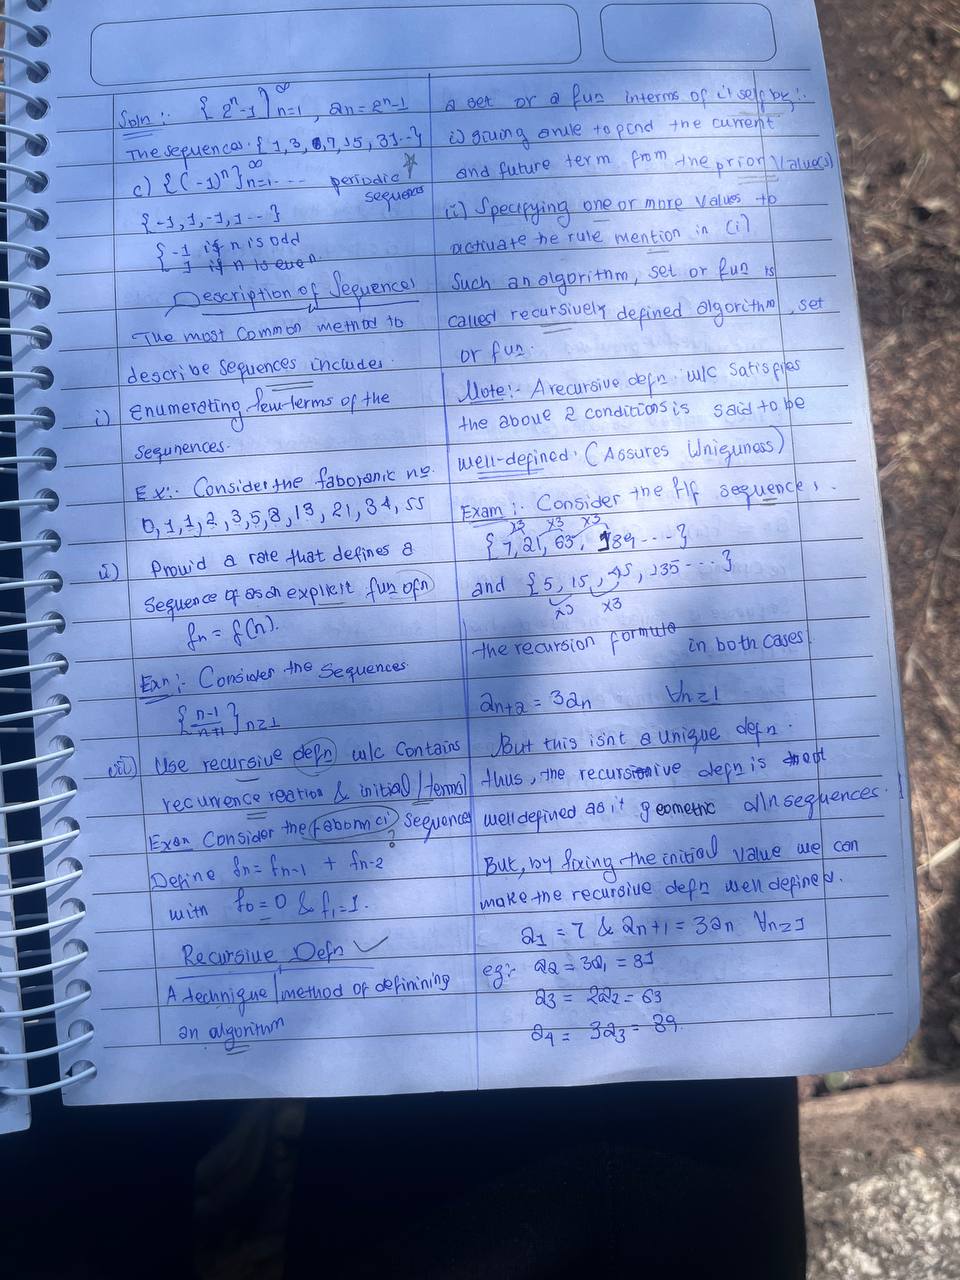 Soln :- {2ⁿ-1}∞n=1, an=2ⁿ-1
The sequences {1,3,7,15,31--}
c) {(-1)ⁿ}∞n=1--- periodic
sequence
{-1,1,-1,1--}
{-1 if n is odd
1 if n is even.
Description of Sequences
The most common method to
describe sequences includes.
i) Enumerating few terms of the
sequnences.
Ex:- Consider the fabonanic no.
0,1,1,2,3,5,8,13,21,34,55
ii) Provid a rate that defines a
sequence of as an explicit fun of n
fn = f(n).
Exn:- Consider the sequences
{n-1/n+1}n≥1
iii) Use recursive defn w/c contains
recurrence reation & initial/terms/
Exan Consider the fabonnci sequences
?
Define fn= fn-1 + fn-2
with f0=0 & f1=1.
Recursive Defn ✓
A technique/method of definining
an algorithm
a set or a fun interms of it self by:-
i) giving a rule to find the current
and future term from the prior values)
ii) Specifying one or more values to
activate he rule mention in (i).
Such an algorithm, set or fun is
called recursively defined algorithm, set
or fun.
Note:- A recursive defn w/c satisfies
the above 2 conditions is said to be
well-defined. (Assures Uniquness)
Exam:- Consider the f/f sequences.
x3 x3 x3
{7,21,63,189----}
and {5,15,45,135----}
x3 x3
the recursion formula in both cases
an+2=3an ∀n≥1
But this isnt a unique defn.
thus, the recursionive defn is not
well defined as it geometric d/n sequences.
But, by fixing the initial value we can
make the recursive defn well defined.
a1 = 7 & an+1 = 3an ∀n≥1
eg:- a2 = 3a1 = 31
a3 = 2a2 = 63
a4 = 3a3 = 89.